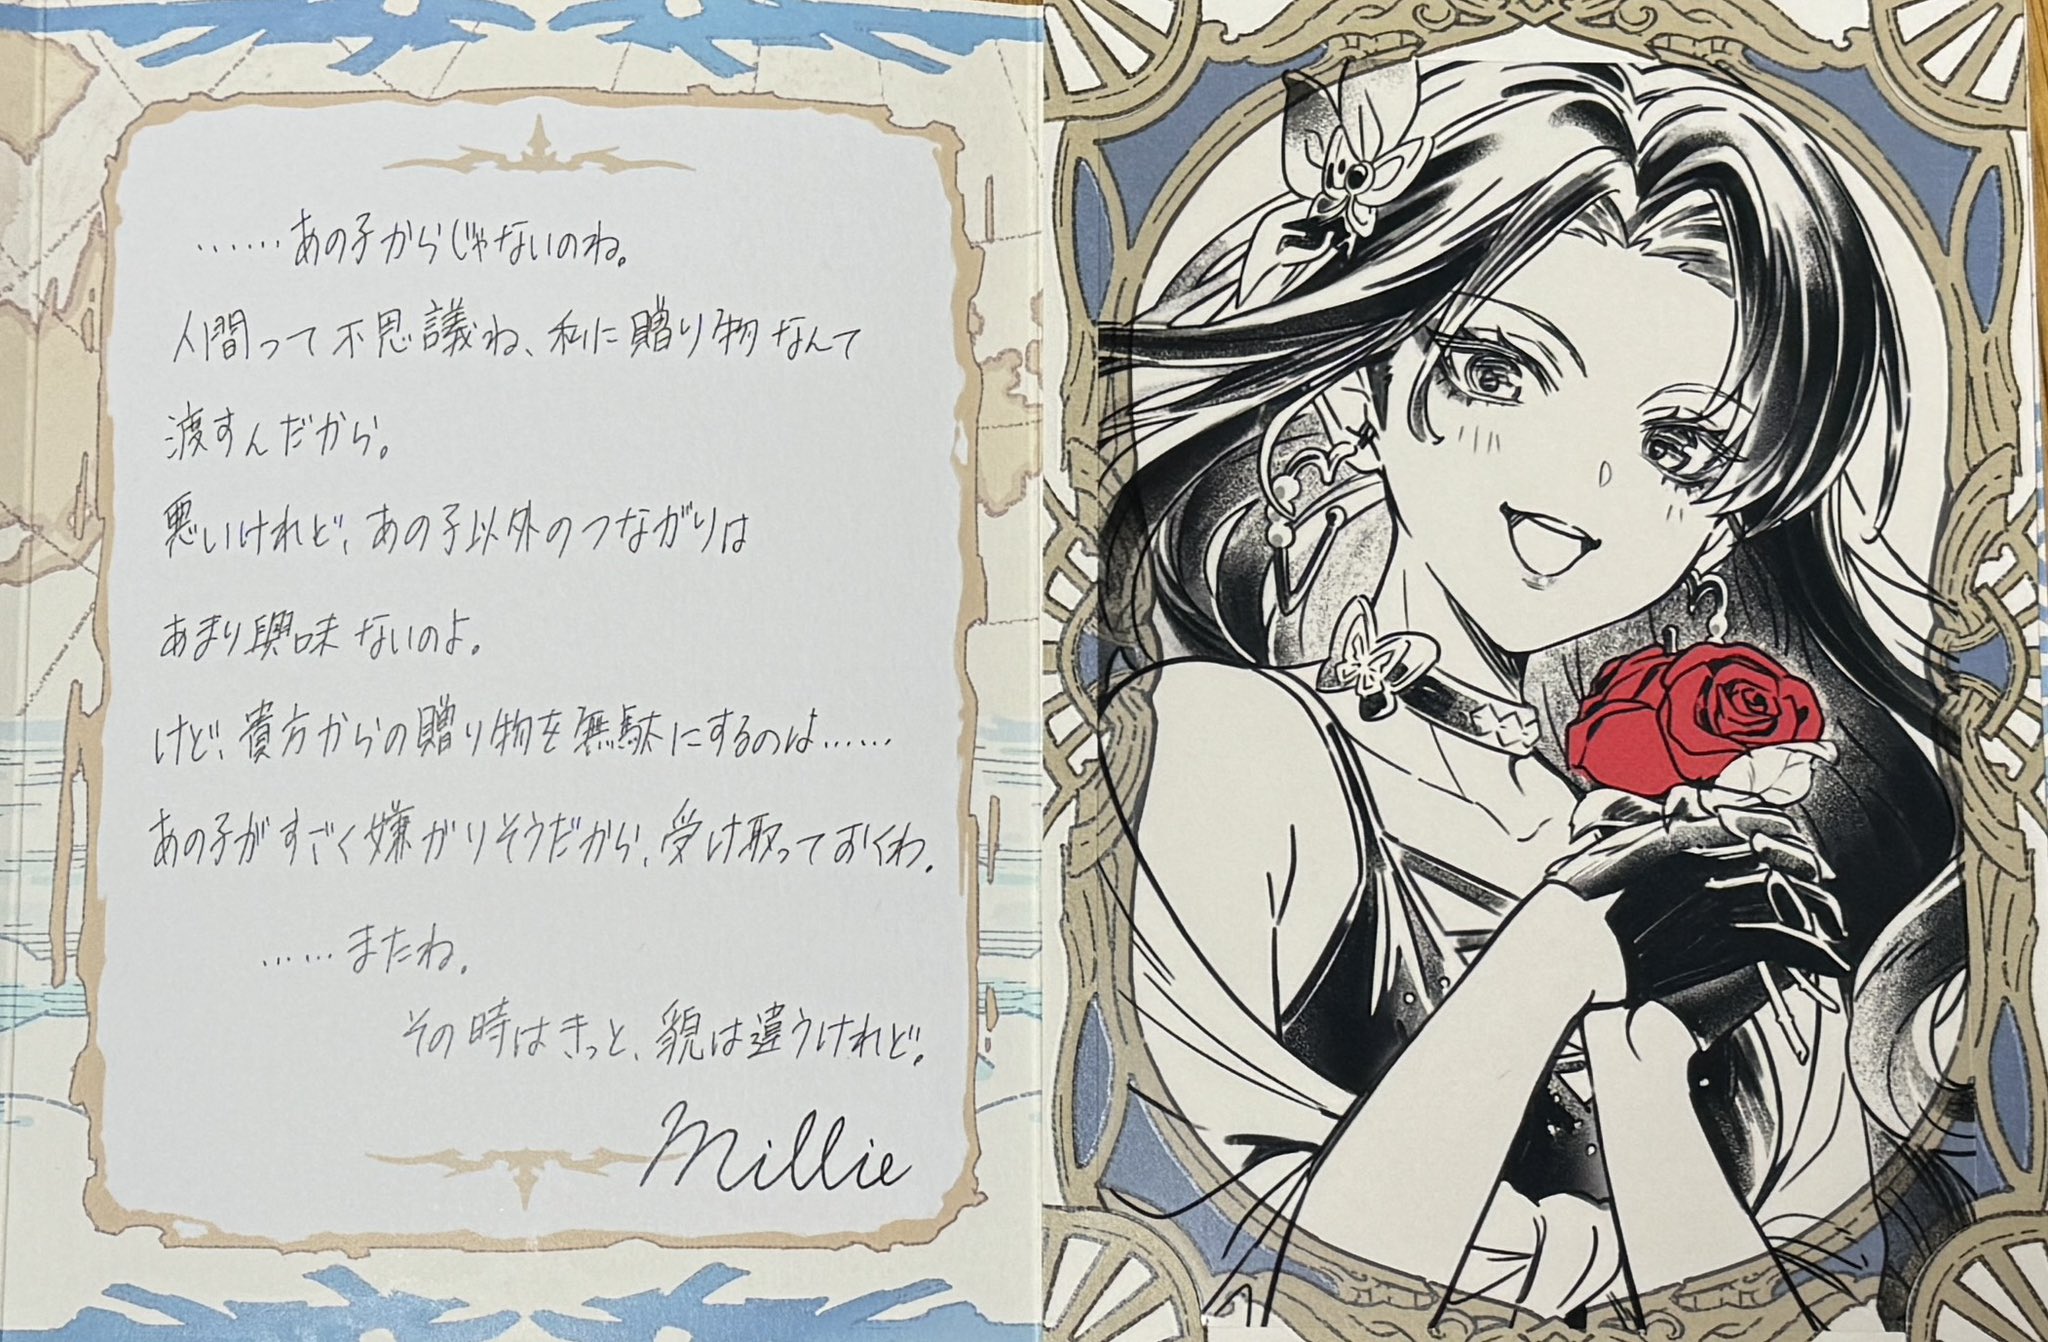 ……あの子からじゃないのね。
人間って不思議ね、私に贈り物なんて
渡すんだから。
悪いけれど、あの子以外のつながりは
あまり興味ないのよ。
けど、貴方からの贈り物を無駄にするのは……
あの子がすごく嫌がりそうだから、受け取っておくわ。
……またね。
その時はきっと、貌は違うけれど。
Millie